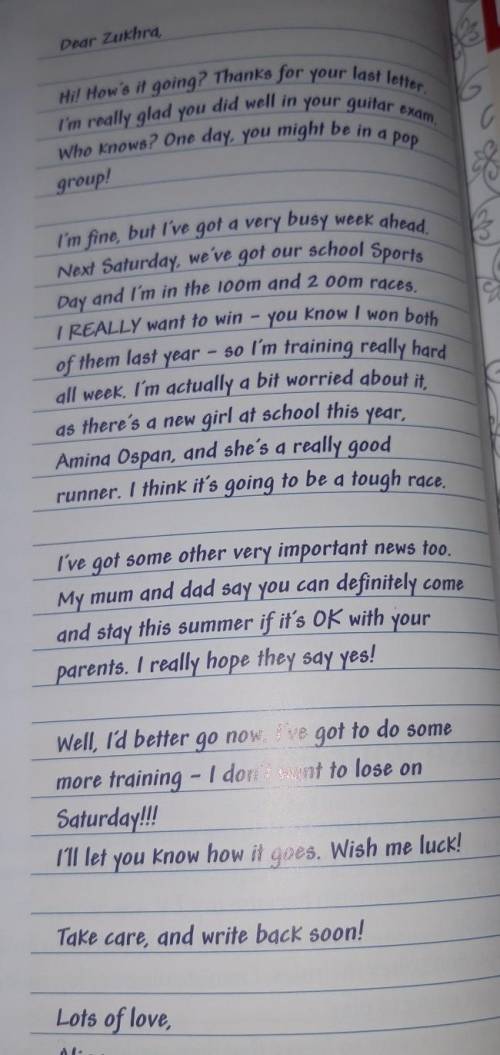 Dear Zukhra,
Hi! How's it going? Thanks for your last letter.
I'm really glad you did well in your guitar exam.
Who knows? One day, you might be in a pop
group!
I'm fine, but I've got a very busy week ahead.
Next Saturday, we've got our school Sports
Day and I'm in the 100m and 2 00m races.
I REALLY want to win – you know I won both
of them last year – so I'm training really hard
all week. I'm actually a bit worried about it,
as there's a new girl at school this year,
Amina Ospan, and she's a really good
runner. I think it's going to be a tough race.
I've got some other very important news too.
My mum and dad say you can definitely come
and stay this summer if it's OK with your
parents. I really hope they say yes!
Well, I'd better go now. I've got to do some
more training – I don't want to lose on
Saturday!!!
I'll let you know how it goes. Wish me luck!
Take care, and write back soon!
Lots of love,